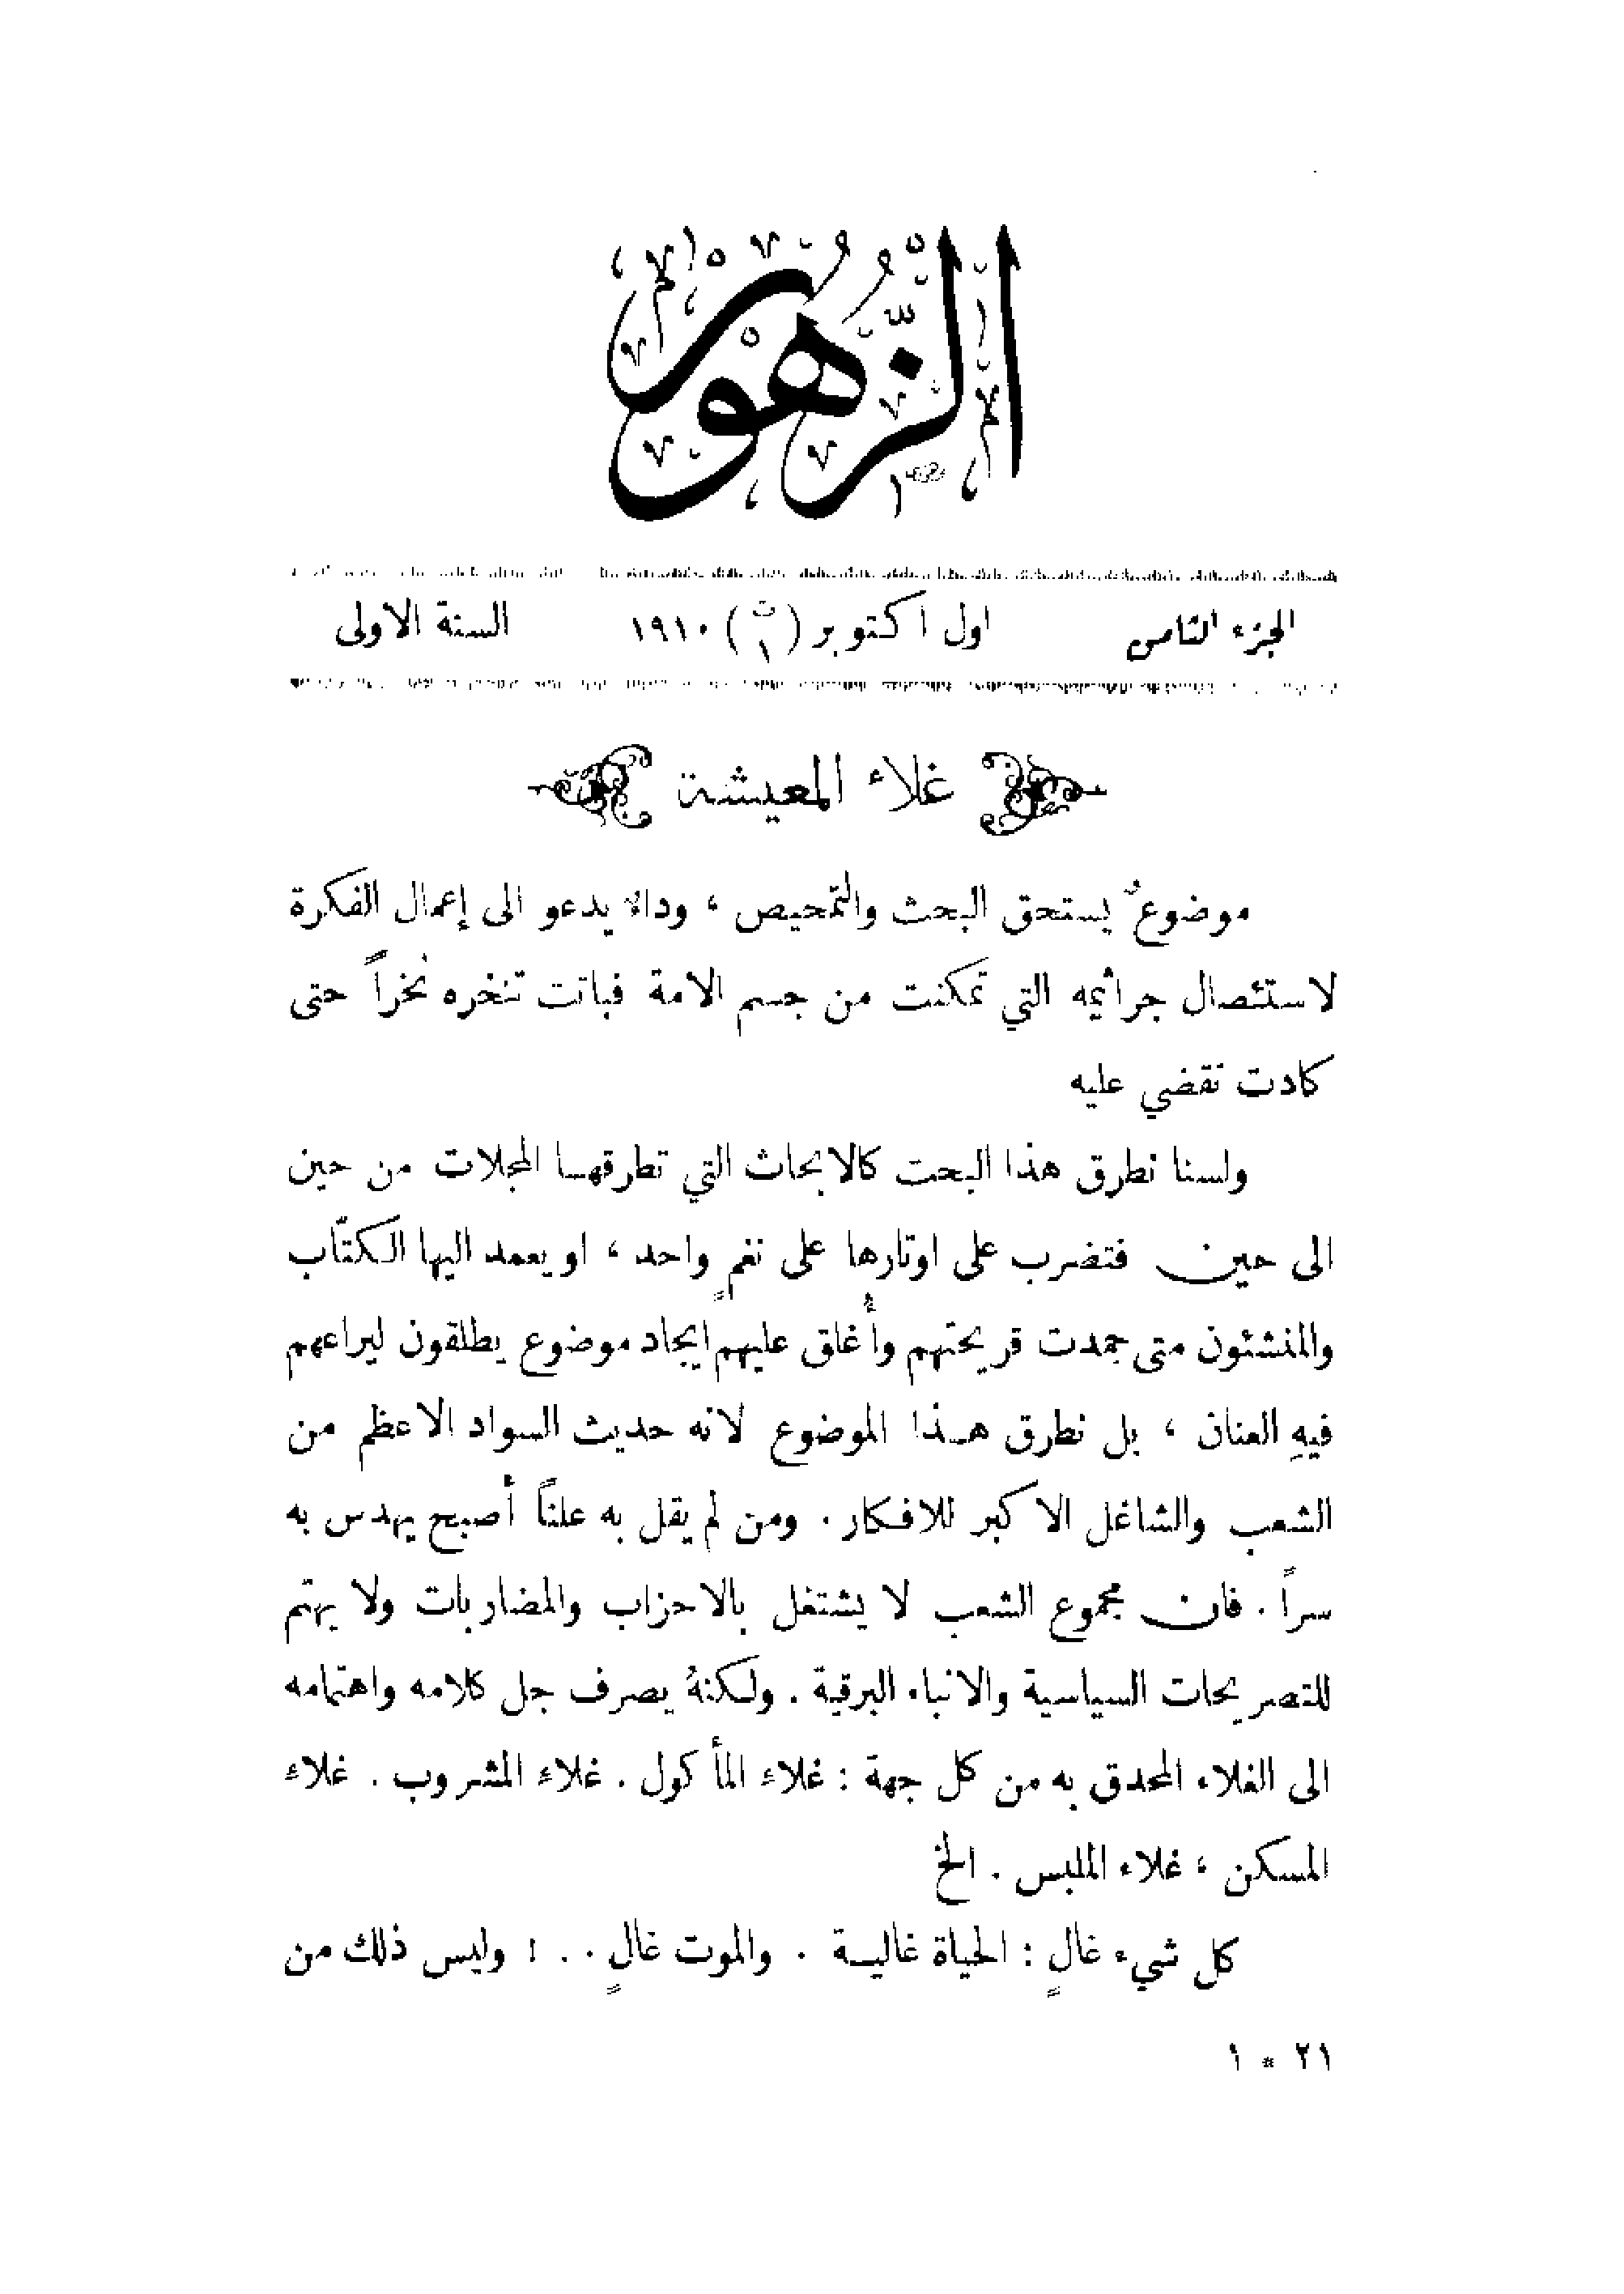 الزهور
الجزء الثامن اول اكتوبر (ت ١) ١٩١٠ السنة الاولى
غلاء المعيشة
موضوعٌ يستحق البحث والتمحيص ، وداءٌ يدعو الى إعمال الفكرة
لاستئصال جراثيمه التي تمكنت من جسم الامة فباتت تنخره نخراً حتى
كادت تقضي عليه
ولسنا نطرق هذا البحث كالابحاث التي تطرقها المجلات من حين
الى حين فتضرب على اوتارها على نغمٍ واحد ، او يعمد اليها الكتّاب
والمنشئون متى جمدت قريحتهم وأُغلق عليهم ايجاد موضوع يطلقون ليراعهم
فيهِ العنان ، بل نطرق هذا الموضوع لانه حديث السواد الاعظم من
الشعب والشاغل الاكبر للافكار . ومن لم يقل به علناً أصبح يهدس به
سراً . فان مجموع الشعب لا يشتغل بالاحزاب والمضاربات ولا يهتم
للتصريحات السياسية والانباء البرقية . ولكنهُ يصرف جل كلامه واهتمامه
الى الغلاء المحدق به من كل جهة : غلاء المأكول . غلاء المشروب . غلاء
المسكن ، غلاء الملبس . الخ
كل شيء غالٍ : الحياة غالية . والموت غالٍ . . ! وليس ذلك من
٢١ * ١